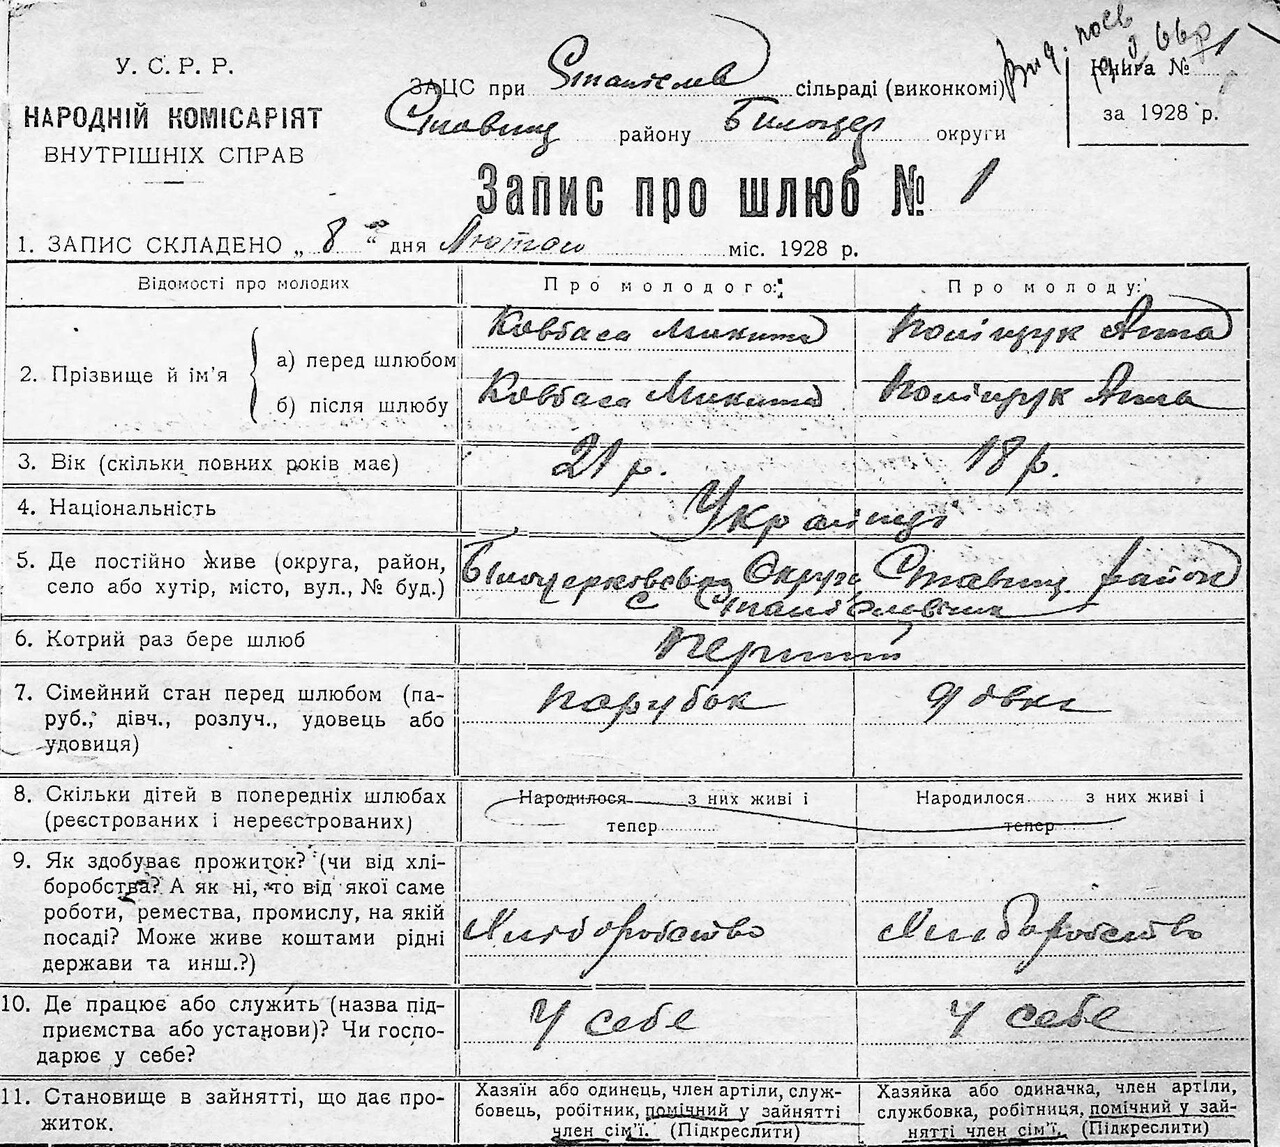 У. С. Р. Р.
НАРОДНІЙ КОМІСАРІЯТ
ВНУТРІШНІХ СПРАВ
ЗАЦС при Станіслав сільраді (виконкомі)
Ставищ району Білоцер округи
Книга № 1
за 1928 р.
Запис про шлюб № 1
1. ЗАПИС СКЛАДЕНО „ 8 " дня Лютого міс. 1928 р.
Відомості про молодих
Про молодого:
Про молоду:
2. Прізвище й ім'я
а) перед шлюбом
Ковбаса Микита
Поліщук Анна
б) після шлюбу
Ковбаса Микита
Поліщук Анна
3. Вік (скільки повних років має)
21 р.
18 р.
4. Національність
Українці
5. Де постійно живе (округа, район,
село або хутір, місто, вул., № буд.)
Білоцерковська Округа Ставищ район
с Станіславчик
6. Котрий раз бере шлюб
перший
7. Сімейний стан перед шлюбом (па-
руб., дівч., розлуч., удовець або
удовиця)
парубок
8. Скільки дітей в попередніх шлюбах
(реєстрованих і нереєстрованих)
Народилося з них живі і
тепер
Народилося з них живі і
тепер
9. Як здобуває прожиток? (чи від хлі-
боробства? А як ні, то від якої саме
роботи, ремества, промислу, на якій
посаді? Може живе коштами рідні
держави та инш.?)
Хліборобство
Хліборобство
10. Де працює або служить (назва під-
приємства або установи)? Чи госпо-
дарює у себе?
У себе
У себе
11. Становище в зайнятті, що дає про-
житок.
Хазяїн або одинець, член артіли, служ-
бовець, робітник, помічний у зайнятті
член сім'ї. (Підкреслити)
Хазяйка або одиначка, член артіли,
службовка, робітниця, помічний у зай-
нятті член сім'ї. (Підкреслити)